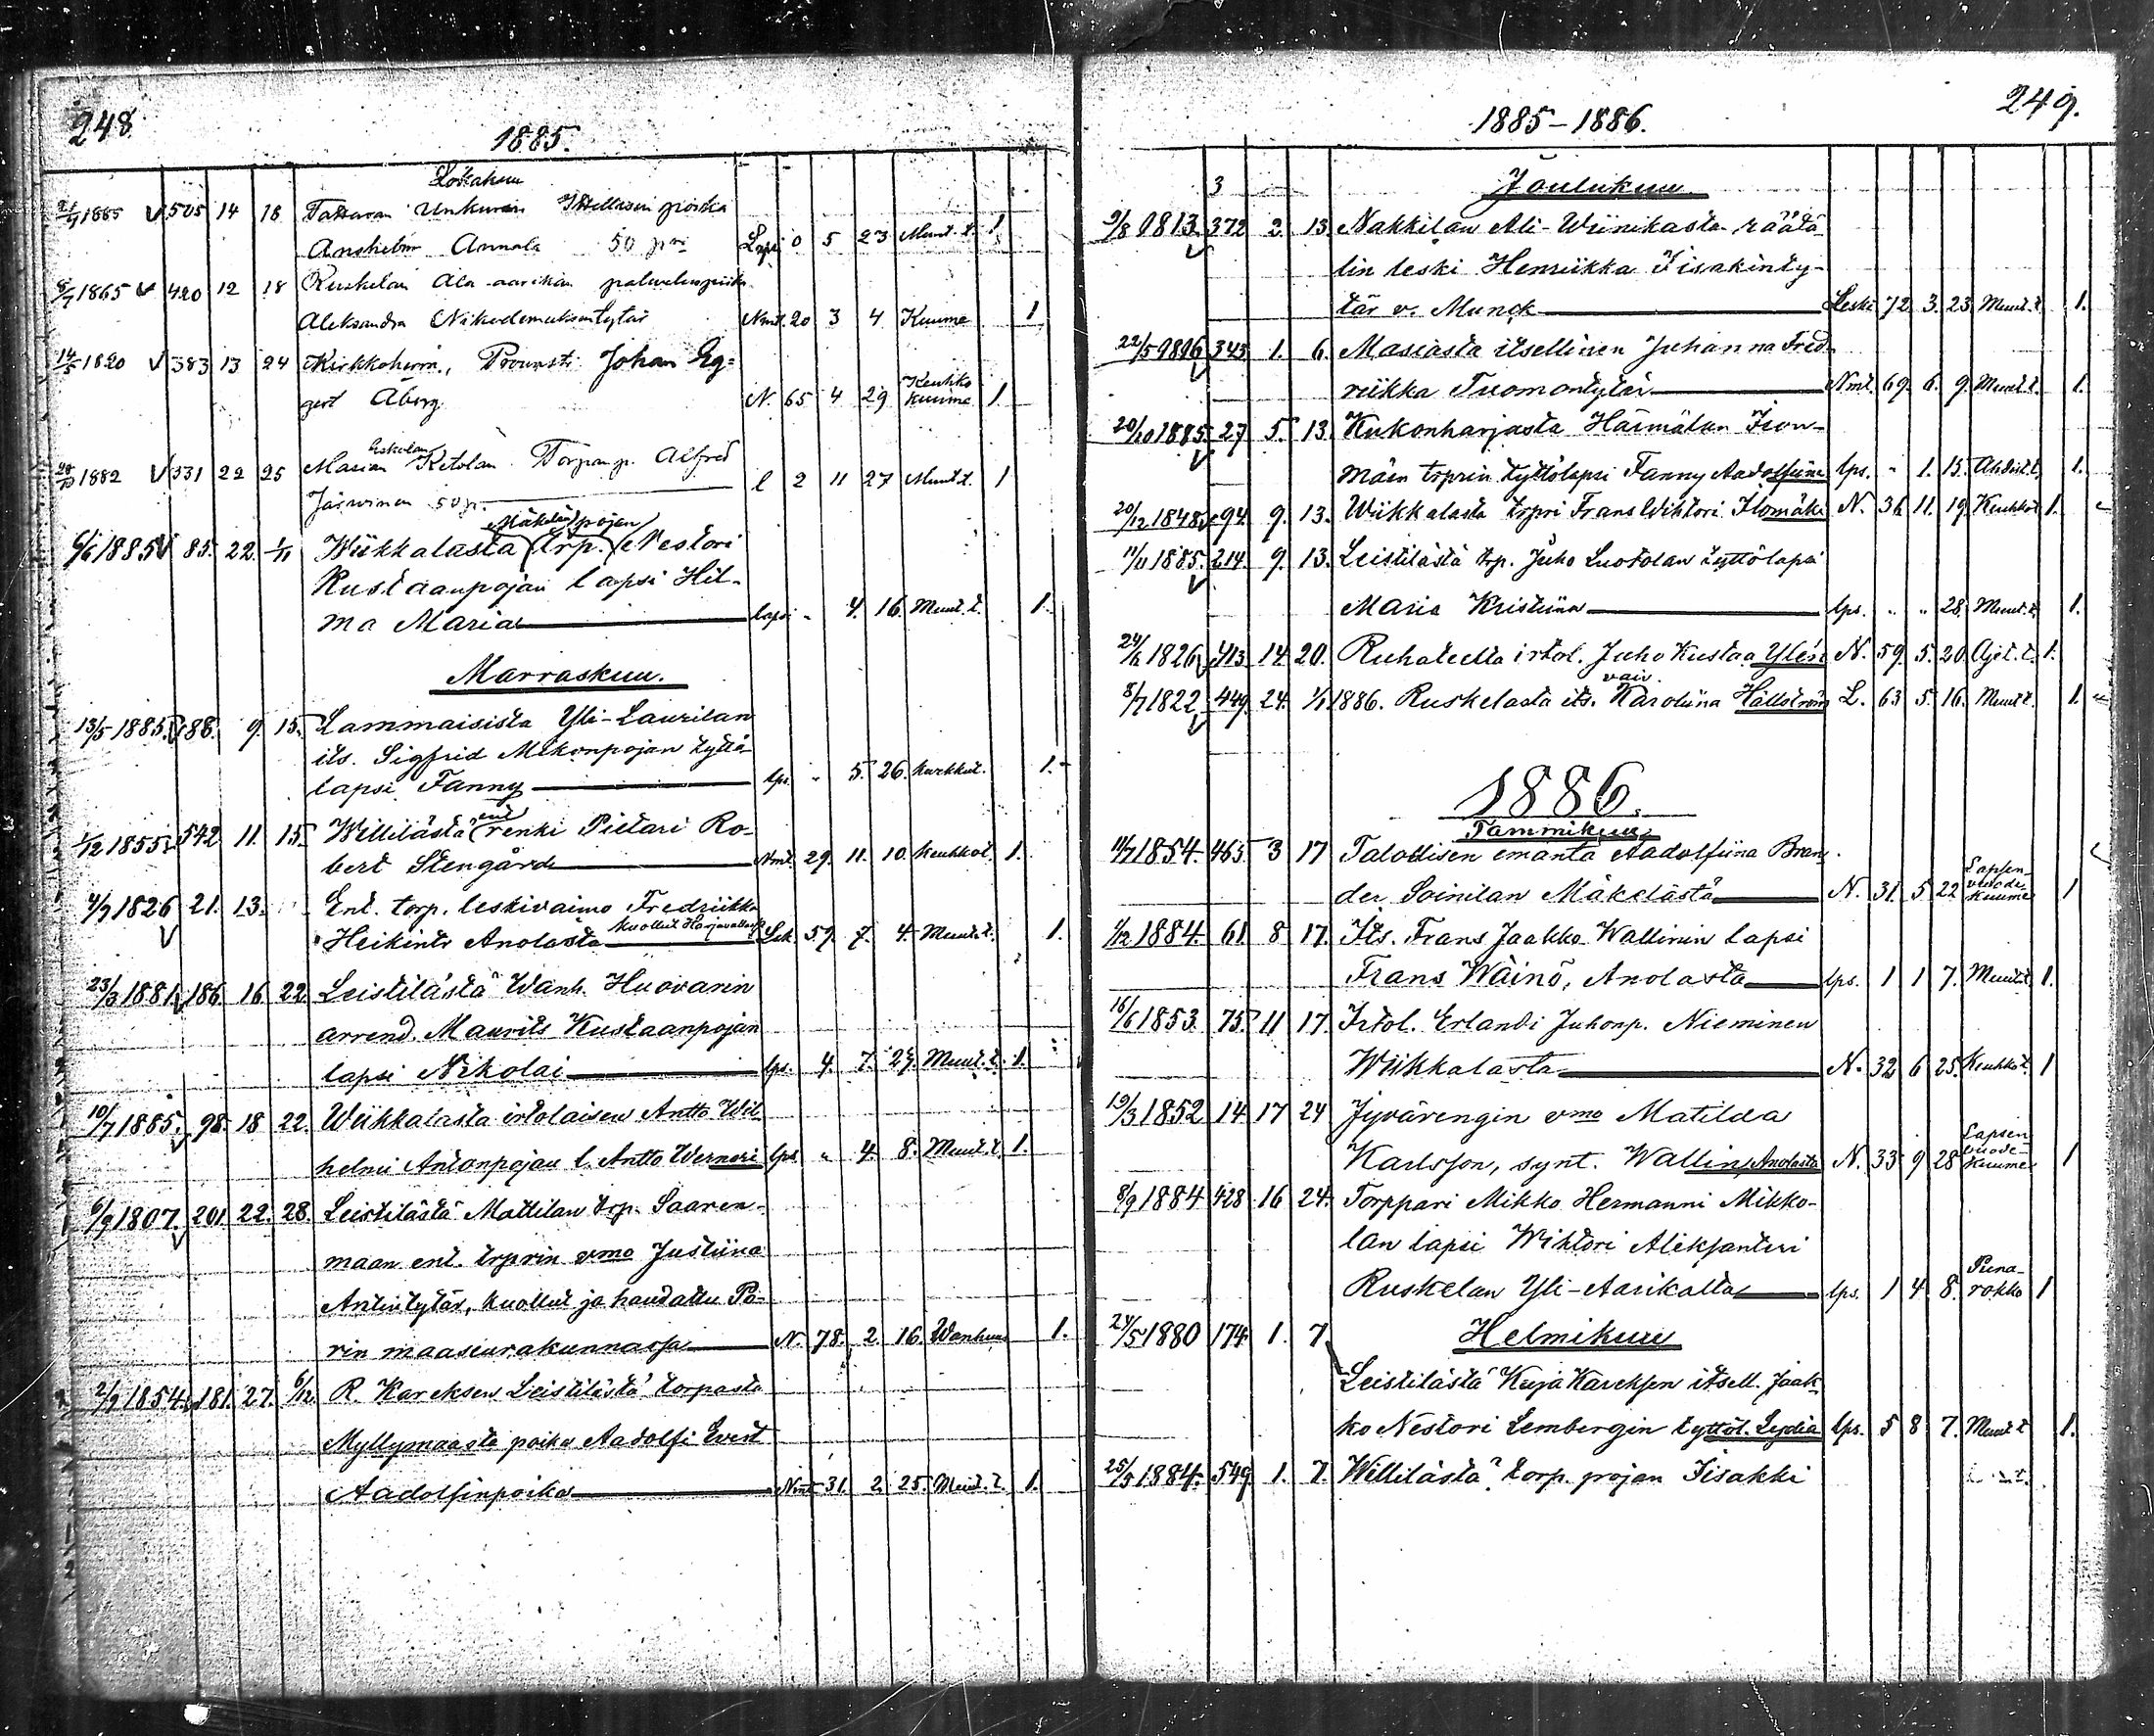 248
1885.
Lokakuu
21/4 1885 505 14 18 Tattaran Unkuran Itsellisen poika
Anshelm Annala 50 p Lapsi 0 5 23 Muut. t. 1
8/7 1865 420 12 18 Ruskelan Ala-aarikan palveluspiika
Aleksandra Nikodemuksentytär Nmt. 20 3 4 Kuume 1
14/5 1820 383 13 24 Kirkkoherra, Provasti Johan Eg-
gert Åberg. N. 65 4 29 Keuhko kuume 1
1882 331 22 25 Masian Eskolan Ketolan Torpan p. Alfred
Järvinen 50 p. l 2 11 27 Muut t. 1
6/6 1885 85. 22. 1/11 Wiikkalasta (trp. Mäkelän pojan) Nestori
Kustaanpojan lapsi Hil-
ma Maria lapsi " 4. 16. Muut. t. 1.
Marraskuu.
13/5 1885. 188. 9. 15. Lammaisista Yli-Laurilan
its. Sigfrid Mikonpojan tyttö-
lapsi Fanny lps. " 5. 26. kurkkut. 1.
1/12 1855. 542 11. 15. Willilästä ent. renki Pietari Ro-
bert Stengård Nmt. 29. 11. 10. Keuhkot. 1.
4/7 1826 21. 13. Ent. torp. leskivaimo Fredriikka
Heikint. Anolasta kuollut Harjavallassa Lsk. 59. 7. 4. Muut. t. 1.
23/3 1881. 186. 16. 22. Leistilästä Wanh. Huovarin
arrend. Maurits Kustaanpojan
lapsi Nikolai lps. 4. 7. 24. Muut. t. 1.
10/7 1885. 98. 18. 22. Wiikkalasta irtolaisen Antto Wil-
helmi Antonpojan l. Antto Werneri lps. " 4. 8. Muut. t. 1.
6/9 1807. 201 22. 28. Leistilästä Mattilan trp. Saaren-
maan ent. trprin vmo Justiina
Antintytär, kuollut ja haudattu Po-
rin maaseurakunnassa N. 78. 2. 16. Wanhuus 1.
2/9 1854. 181. 27. 6/12. R. Kareksen Leistilästä torpasta
Myllymaasta poika Aadolfi Evert
Aadolfinpoika Nmt 31. 2. 25. Muut. t. 1.
249.
1885-1886.
3 Joulukuu.
9/8 1813. 372 2. 13. Nakkilan Ali-Wiinikasta räätä-
lin leski Henriikka Iisakinty-
tär v. Munck Leski 72. 3. 23 Muut. t. 1.
22/5 1816 345 1. 6. Masiasta itsellinen Juhanna Fred-
riikka Tuomontytär Nmt. 69. 6. 9. Muut. t. 1.
20/10 1885. 27 5. 13. Kukonharjasta Härmälän Ison-
mäen trprin tyttölapsi Fanny Aadolfiina lps. " 1. 15. Ahdist. t. 1.
20/12 1848. 94. 9. 13. Wiikkalasta trpri Frans Wihtori Ilomäki N. 36 11. 19. Keuhkot 1.
11/11 1885. 214. 9. 13. Leistilästä trp. Juho Luotolan tyttölapsi
Maria Kristiina lps. " " 28. Muut. t. 1.
24/6 1826. 413. 14. 20. Ruhateelta irtol. Juho Kustaa Ylén N. 59. 5. 20. Ajet. t. 1.
8/7 1822. 449. 24. 1/1 1886. Ruskelasta its. vaiv. Karoliina Hällström L. 63 5. 16. Muut t. 1.
1886.
Tammikuu
11/7 1854. 465. 3 17 Talollisen emäntä Aadolfiina Bran-
der Soinilan Mäkelästä N. 31. 5 22 Lapsen- vuode- kuume 1
1/12 1884. 61. 8 17. Its. Frans Jaakko Wallinin lapsi
Frans Wäinö, Anolasta lps. 1 1 7. Muut t. 1.
16/6 1853. 75. 11 17. Irtol. Erlandi Juhonp. Nieminen
Wiikkalasta N. 32 6 25. Keuhkot. 1
19/3 1852 14. 17 24 Jyvärengin vmo Matilda
Karlsson, synt. Wallin, Anolasta N. 33 9 28 Lapsen vuode- kuume 1
8/9 1884 428 16 24. Torppari Mikko Hermanni Mikko-
lan lapsi Wihtori Aleksanteri
Ruskelan Yli-Aarikalta lps. 1 4 8. Puna- rokko 1
24/5 1880 174. 1. 7. Helmikuu
Leistilästä Kuja Kareksen itsell. Jaak-
ko Nestori Lembergin tyttöl. Lydia lps. 5 8 7. Muut t 1.
25/5 1884. 549. 1. 7. Willilästä torp. pojan Iisakki